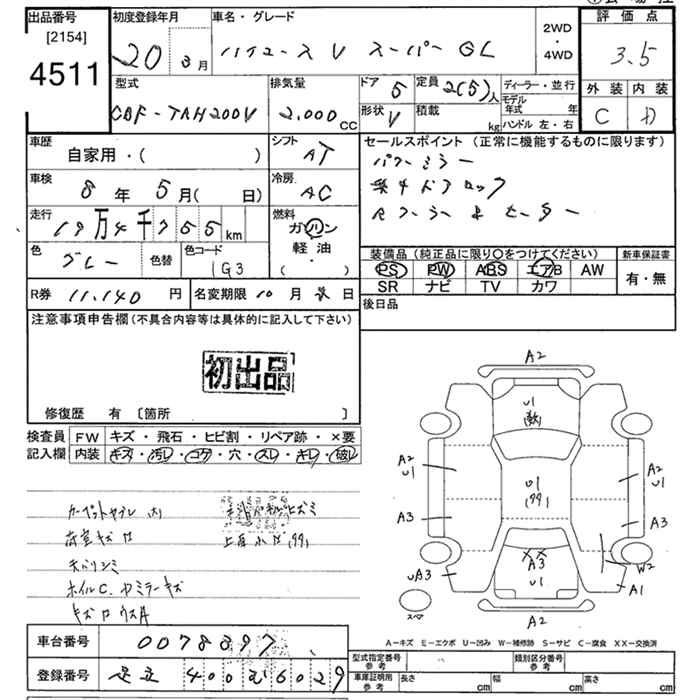 出品番号 初度登録年月 車名・グレード 評価点
[2154] 2WD・4WD
4511 20 3月 ハイエースV スーパーGL 3.5
型式 排気量 ドア 5 定員 2(5)人 ディーラー・並行 外装 内装
CBF-TRH200V 2.000cc 形状 V 積載 kg モデル年式 年 C D
ハンドル 左・右
車歴 シフト セールスポイント (正常に機能するものに限ります)
自家用・( ) AT パワーミラー
車検 8年 5月(日) 冷房 AC 集中ドアロック
走行 19万4千755km 燃料 Rクーラー&ヒーター
ガソリン・軽油・( )
色 グレー 色替 色コード 1G3 装備品(純正品に限り○をつけてください) 新車保証書
PS PW ABS エアB AW 有・無
R券 11.140円 名変期限 10月 日 SR ナビ TV カワ
注意事項申告欄(不具合内容等は具体的に記入して下さい) 後日品
初出品
修復歴 有 [箇所 ]
検査員 FW キズ・飛石・ヒビ割・リペア跡・×要
記入欄 内装 キズ・汚レ・コゲ・穴・スレ・キレ・破レ
カーペットヤブレ 大
荷室キズ
ホイルC. ドミラーキズ
A2
U1
A2
U1
U1
A2
U1
A3
A3
A3
U1
UA3
W2
A1
スペア
A2
A-キズ E-エクボ U-凹み W-補修跡 S-サビ C-腐食 XX-交換済
車台番号 0078397 型式指定番号 参考 類別区分番号 参考
登録番号 足立 400 6029 車庫証明用 参考 長さ cm 幅 cm 高さ cm